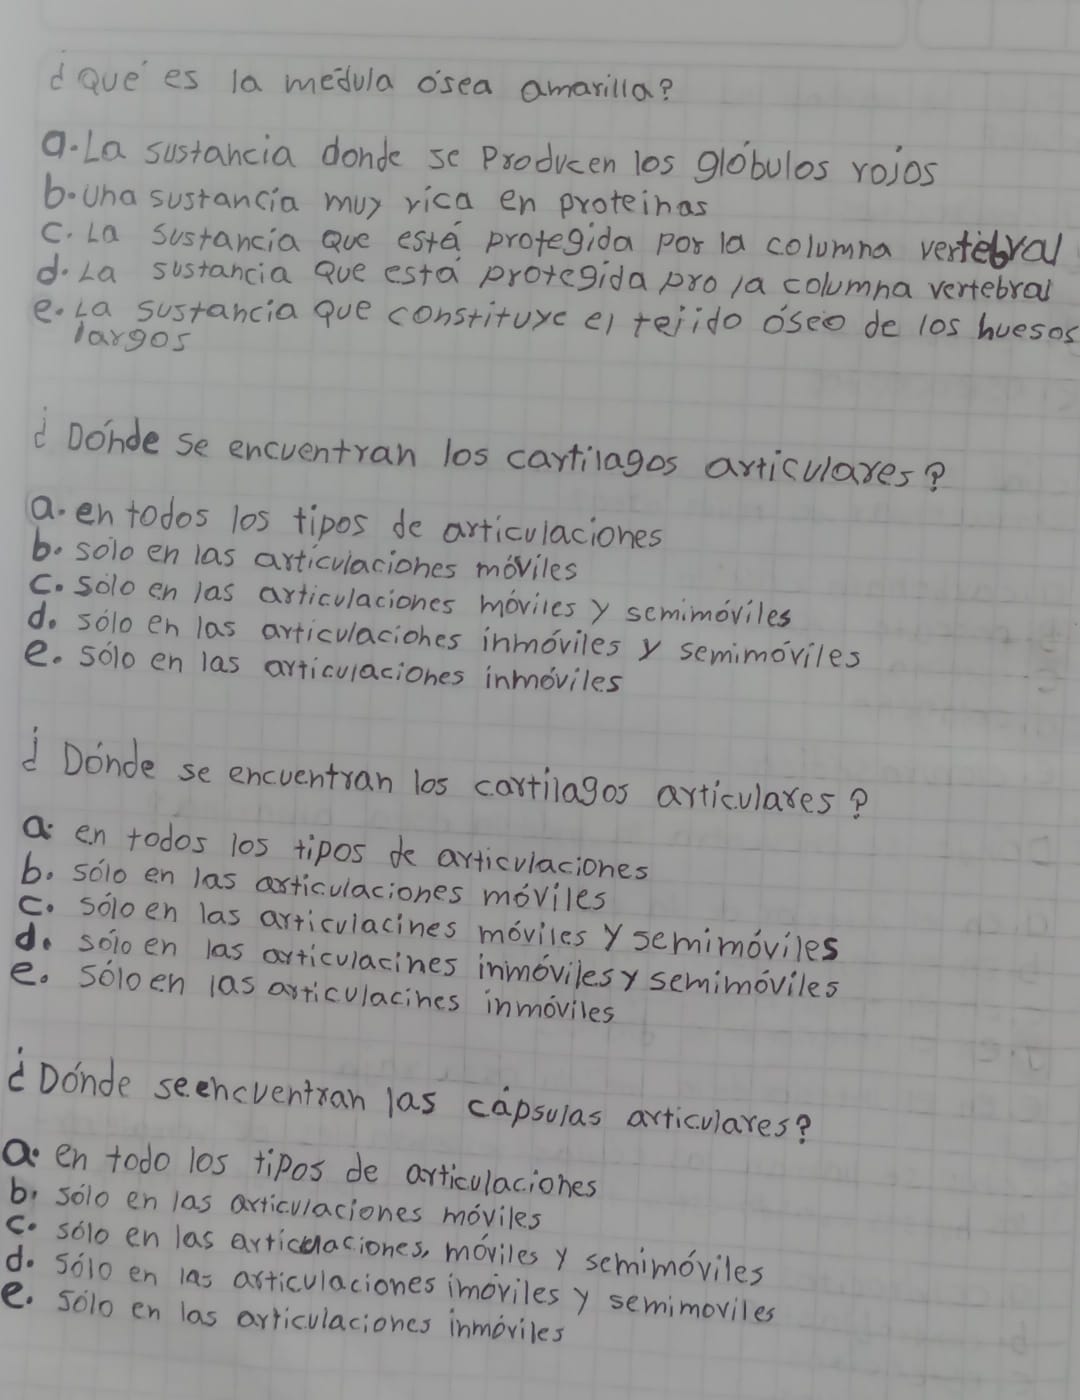 ¿Qué es la médula ósea amarilla?
a. La sustancia donde se producen los glóbulos rojos
b. Una sustancia muy rica en proteinas
c. La sustancia que está protegida por la columna vertebral
d. La sustancia que está protegida pro la columna vertebral
e. La sustancia que constituye el tejido óseo de los huesos
largos
¿Dónde se encuentran los cartilagos articulares?
a. en todos los tipos de articulaciones
b. sólo en las artículaciones móviles
c. sólo en las articulaciones móviles y semimóviles
d. sólo en las articulaciones inmóviles y semimóviles
e. sólo en las articulaciones inmóviles
¿Dónde se encuentran los cartilagos articulares?
a. en todos los tipos de articulaciones
b. sólo en las articulaciones móviles
c. sólo en las articulacines móviles y semimóviles
d. sólo en las articulacines inmóviles y semimóviles
e. sólo en las articulacines inmóviles
¿Dónde se encuentran las cápsulas articulares?
a. en todo los tipos de articulaciones
b. sólo en las articulaciones móviles
c. sólo en las articulaciones, móviles y semimóviles
d. sólo en las articulaciones imóviles y semimoviles
e. sólo en las articulaciones inmóviles